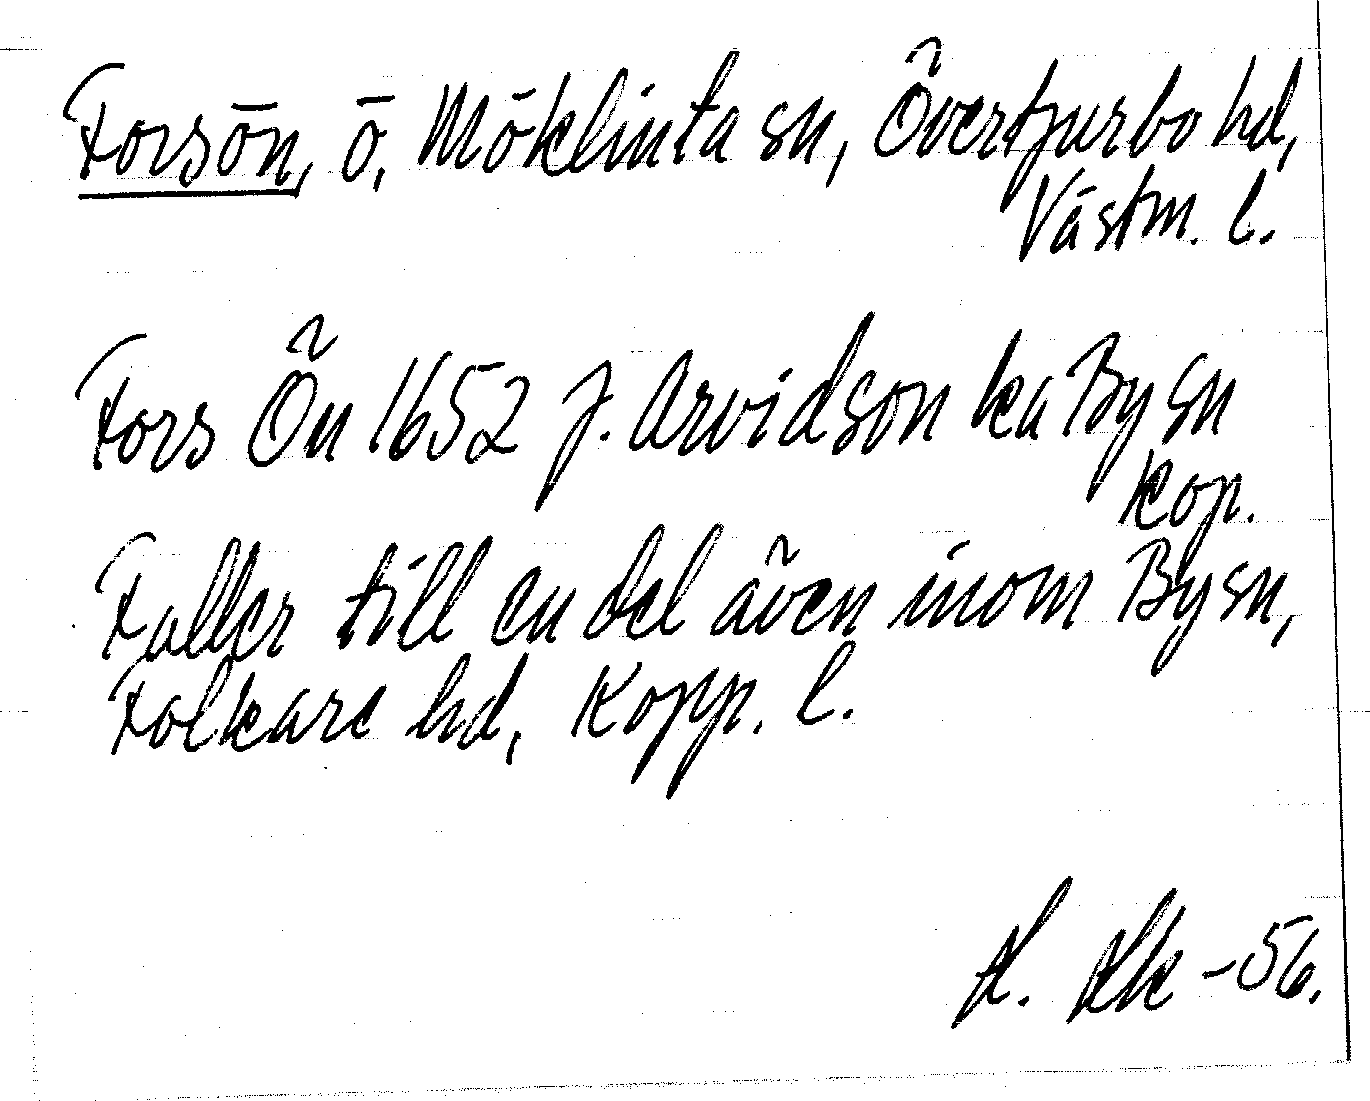 Forsön, ö, Möklinta sn, Övertjurbo hd,
Västm. l.
Fors Ön 1652 J. Arvidson ka By sn
Kop.
Faller till en del även inom By sn,
Folkare hd, Kopp. l.
-56.